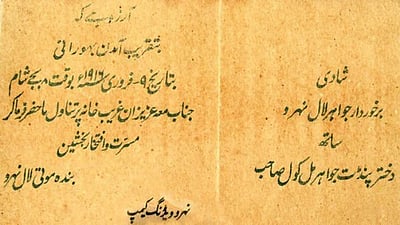 شادی
برخوردار جواہر لال نہرو
ساتھ
دختر پنڈت جواہر مل کول صاحب
آرزو
بتقریب آمدن بہو رانی
بتاریخ ۹ - فروری سنہ ۱۹۱۶ بوقت ۸ بجے شام
جناب معہ عزیزان غریب خانہ پر تناول ماحضر فرما کر
مسرت و افتخار بخشیں
بندہ موتی لال نہرو
نہرو ویڈنگ کیمپ